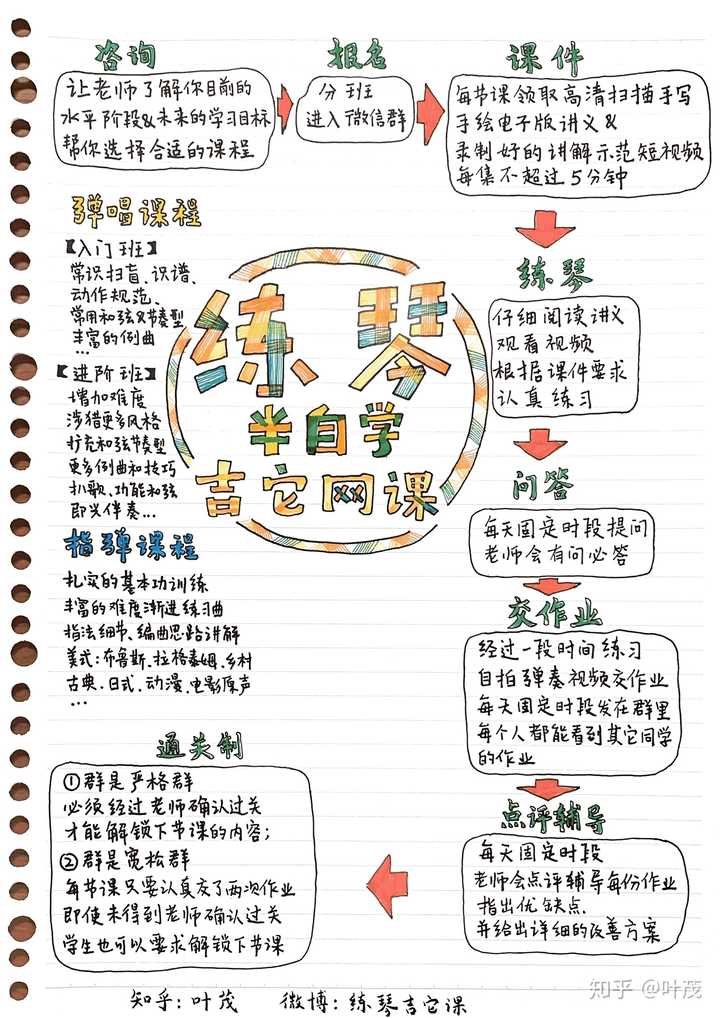 咨询
让老师了解你目前的
水平阶段&未来的学习目标
帮你选择合适的课程
报名
分班
进入微信群
课件
每节课领取高清扫描手写
手绘电子版讲义&
录制好的讲解示范短视频
每集不超过5分钟
练琴
仔细阅读讲义
观看视频
根据课件要求
认真练习
问答
每天固定时段提问
老师会有问必答
交作业
经过一段时间练习
自拍弹奏视频交作业
每天固定时段发在群里
每个人都能看到其它同学
的作业
点评辅导
每天固定时段
老师会点评辅导每份作业
指出优缺点.
并给出详细的改善方案
通关制
①群是严格群
必须经过老师确认过关
才能解锁下节课的内容;
②群是宽松群
每节课只要认真交了两次作业
即使未得到老师确认过关
学生也可以要求解锁下节课
弹唱课程
【入门班】
常识扫盲、识谱、
动作规范、
常用和弦&节奏型
丰富的例曲
...
【进阶班】
增加难度
涉猎更多风格
扩充和弦节奏型
更多例曲和技巧
扒歌、功能和弦
即兴伴奏...
指弹课程
扎实的基本功训练
丰富的难度渐进练习曲
指法细节、编曲思路讲解
美式:布鲁斯、拉格泰姆、乡村
古典、日式、动漫、电影原声
...
练琴
半自学
吉它网课
知乎:叶茂 微博:练琴吉它课
知乎 @叶茂